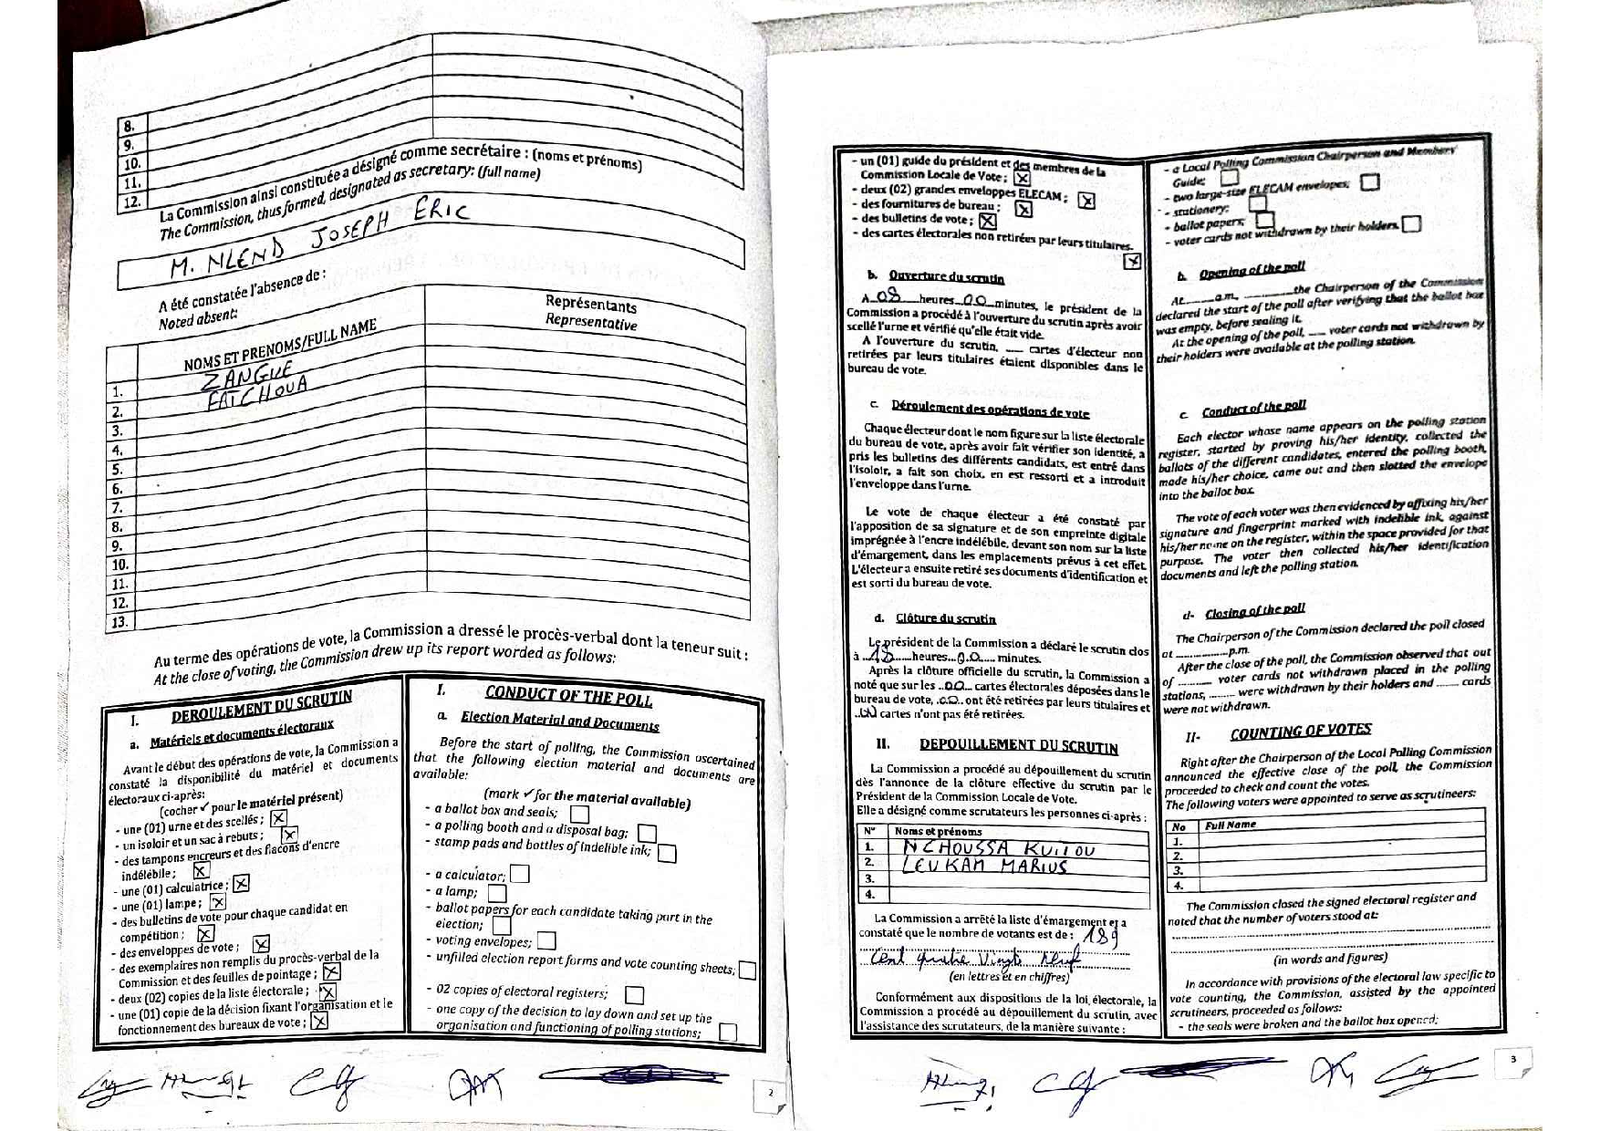 8.
9.
10.
11.
12.
La Commission ainsi constituée a désigné comme secrétaire : (noms et prénoms)
The Commission, thus formed, designated as secretary: (full name)
M. NLEND JOSEPH ERIC
A été constatée l'absence de :
Noted absent:
NOMS ET PRENOMS/FULL NAME
Représentants
Representative
1. ZANGUE
2. FATCHOUA
3.
4.
5.
6.
7.
8.
9.
10.
11.
12.
13.
Au terme des opérations de vote, la Commission a dressé le procès-verbal dont la teneur suit :
At the close of voting, the Commission drew up its report worded as follows:
I. DEROULEMENT DU SCRUTIN
a. Matériels et documents électoraux
Avant le début des opérations de vote, la Commission a
constaté la disponibilité du matériel et documents
électoraux ci-après:
(cocher ✓ pour le matériel présent)
- une (01) urne et des scellés ; ☒
- un isoloir et un sac à rebuts ; ☒
- des tampons encreurs et des flacons d'encre
indélébile ; ☒
- une (01) calculatrice ; ☒
- une (01) lampe ; ☒
- des bulletins de vote pour chaque candidat en
compétition ; ☒
- des enveloppes de vote ; ☒
- des exemplaires non remplis du procès-verbal de la
Commission et des feuilles de pointage ; ☒
- deux (02) copies de la liste électorale ; ☒
- une (01) copie de la décision fixant l'organisation et le
fonctionnement des bureaux de vote ; ☒
I. CONDUCT OF THE POLL
a. Election Material and Documents
Before the start of polling, the Commission ascertained
that the following election material and documents are
available:
(mark ✓ for the material available)
- a ballot box and seals; ☐
- a polling booth and a disposal bag; ☐
- stamp pads and bottles of indelible ink; ☐
- a calculator; ☐
- a lamp; ☐
- ballot papers for each candidate taking part in the
election; ☐
- voting envelopes; ☐
- unfilled election report forms and vote counting sheets; ☐
- 02 copies of electoral registers; ☐
- one copy of the decision to lay down and set up the
organisation and functioning of polling stations; ☐
2
- un (01) guide du président et des membres de la
Commission Locale de Vote ; ☒
- deux (02) grandes enveloppes ELECAM ; ☒
- des fournitures de bureau ; ☒
- des bulletins de vote ; ☒
- des cartes électorales non retirées par leurs titulaires.
☒
b. Ouverture du scrutin
A 08 heures 00 minutes, le président de la
Commission a procédé à l'ouverture du scrutin après avoir
scellé l'urne et vérifié qu'elle était vide.
A l'ouverture du scrutin, ___ cartes d'électeur non
retirées par leurs titulaires étaient disponibles dans le
bureau de vote.
c. Déroulement des opérations de vote
Chaque électeur dont le nom figure sur la liste électorale
du bureau de vote, après avoir fait vérifier son identité, a
pris les bulletins des différents candidats, est entré dans
l'isoloir, a fait son choix, en est ressorti et a introduit
l'enveloppe dans l'urne.
Le vote de chaque électeur a été constaté par
l'apposition de sa signature et de son empreinte digitale
imprégnée à l'encre indélébile, devant son nom sur la liste
d'émargement, dans les emplacements prévus à cet effet.
L'électeur a ensuite retiré ses documents d'identification et
est sorti du bureau de vote.
d. Clôture du scrutin
Le président de la Commission a déclaré le scrutin clos
à 18 heures 00 minutes.
Après la clôture officielle du scrutin, la Commission a
noté que sur les 00 cartes électorales déposées dans le
bureau de vote, 00 ont été retirées par leurs titulaires et
00 cartes n'ont pas été retirées.
II. DEPOUILLEMENT DU SCRUTIN
La Commission a procédé au dépouillement du scrutin
dès l'annonce de la clôture effective du scrutin par le
Président de la Commission Locale de Vote.
Elle a désigné comme scrutateurs les personnes ci-après :
N° Noms et prénoms
1. NCHOUSSA KUITOU
2. LEUKAM MARIUS
3.
4.
La Commission a arrêté la liste d'émargement et a
constaté que le nombre de votants est de : 189
Cent quatre Vingt Neuf
(en lettres et en chiffres)
Conformément aux dispositions de la loi électorale, la
Commission a procédé au dépouillement du scrutin, avec
l'assistance des scrutateurs, de la manière suivante :
- a Local Polling Commission Chairperson and Members'
Guide; ☐
- two large-size ELECAM envelopes; ☐
- stationery; ☐
- ballot papers; ☐
- voter cards not withdrawn by their holders. ☐
b. Opening of the poll
At ______ a.m, ______ the Chairperson of the Commission
declared the start of the poll after verifying that the ballot box
was empty, before sealing it.
At the opening of the poll, ___ voter cards not withdrawn by
their holders were available at the polling station.
c. Conduct of the poll
Each elector whose name appears on the polling station
register, started by proving his/her identity, collected the
ballots of the different candidates, entered the polling booth,
made his/her choice, came out and then slotted the envelope
into the ballot box.
The vote of each voter was then evidenced by affixing his/her
signature and fingerprint marked with indelible ink, against
his/her name on the register, within the space provided for that
purpose. The voter then collected his/her identification
documents and left the polling station.
d- Closing of the poll
The Chairperson of the Commission declared the poll closed
at ............ p.m.
After the close of the poll, the Commission observed that out
of ........ voter cards not withdrawn placed in the polling
stations, ....... were withdrawn by their holders and ...... cards
were not withdrawn.
II- COUNTING OF VOTES
Right after the Chairperson of the Local Polling Commission
announced the effective close of the poll, the Commission
proceeded to check and count the votes.
The following voters were appointed to serve as scrutineers:
No Full Name
1.
2.
3.
4.
The Commission closed the signed electoral register and
noted that the number of voters stood at:
(in words and figures)
In accordance with provisions of the electoral law specific to
vote counting, the Commission, assisted by the appointed
scrutineers, proceeded as follows:
- the seals were broken and the ballot box opened;
3